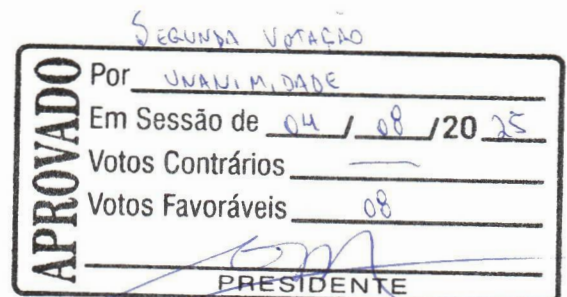 SEGUNDA VOTAÇÃO
APROVADO
Por UNANIMIDADE
Em Sessão de 04 / 08 /20 25
Votos Contrários —
Votos Favoráveis 08
PRESIDENTE